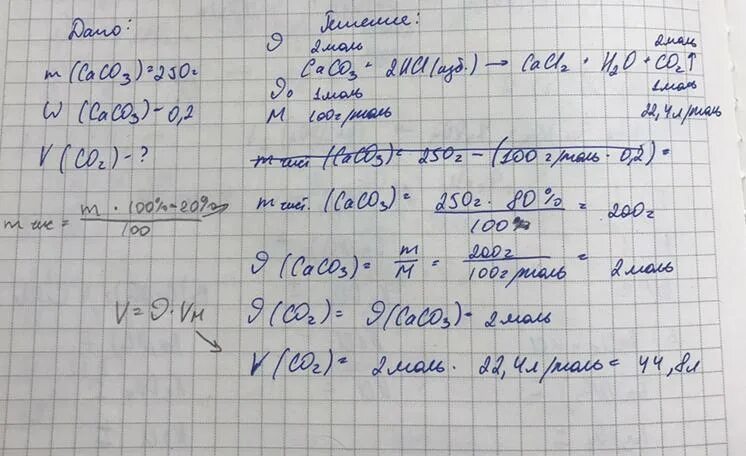 Дано:
m (CaCO3) = 250г
W (CaCO3) - 0,2
V (CO2) - ?
m чис = m · 100% - 20% / 100
V = ϑ · Vм
Решение:
ϑ 2моль 2моль
CaCO3 + 2HCl (изб.) → CaCl2 + H2O + CO2↑
ϑ0 1моль 1моль
M 100г/моль 22,4л/моль
m чист (CaCO3) = 250г - (100г/моль · 0,2) =
m чист. (CaCO3) = 250г · 80% / 100% = 200г
ϑ (CaCO3) = m / M = 200г / 100г/моль = 2моль
ϑ (CO2) = ϑ (CaCO3) = 2моль
V (CO2) = 2моль · 22,4л/моль = 44,8л